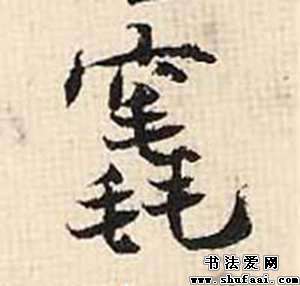 竁
书法爱网
www.shufaai.com